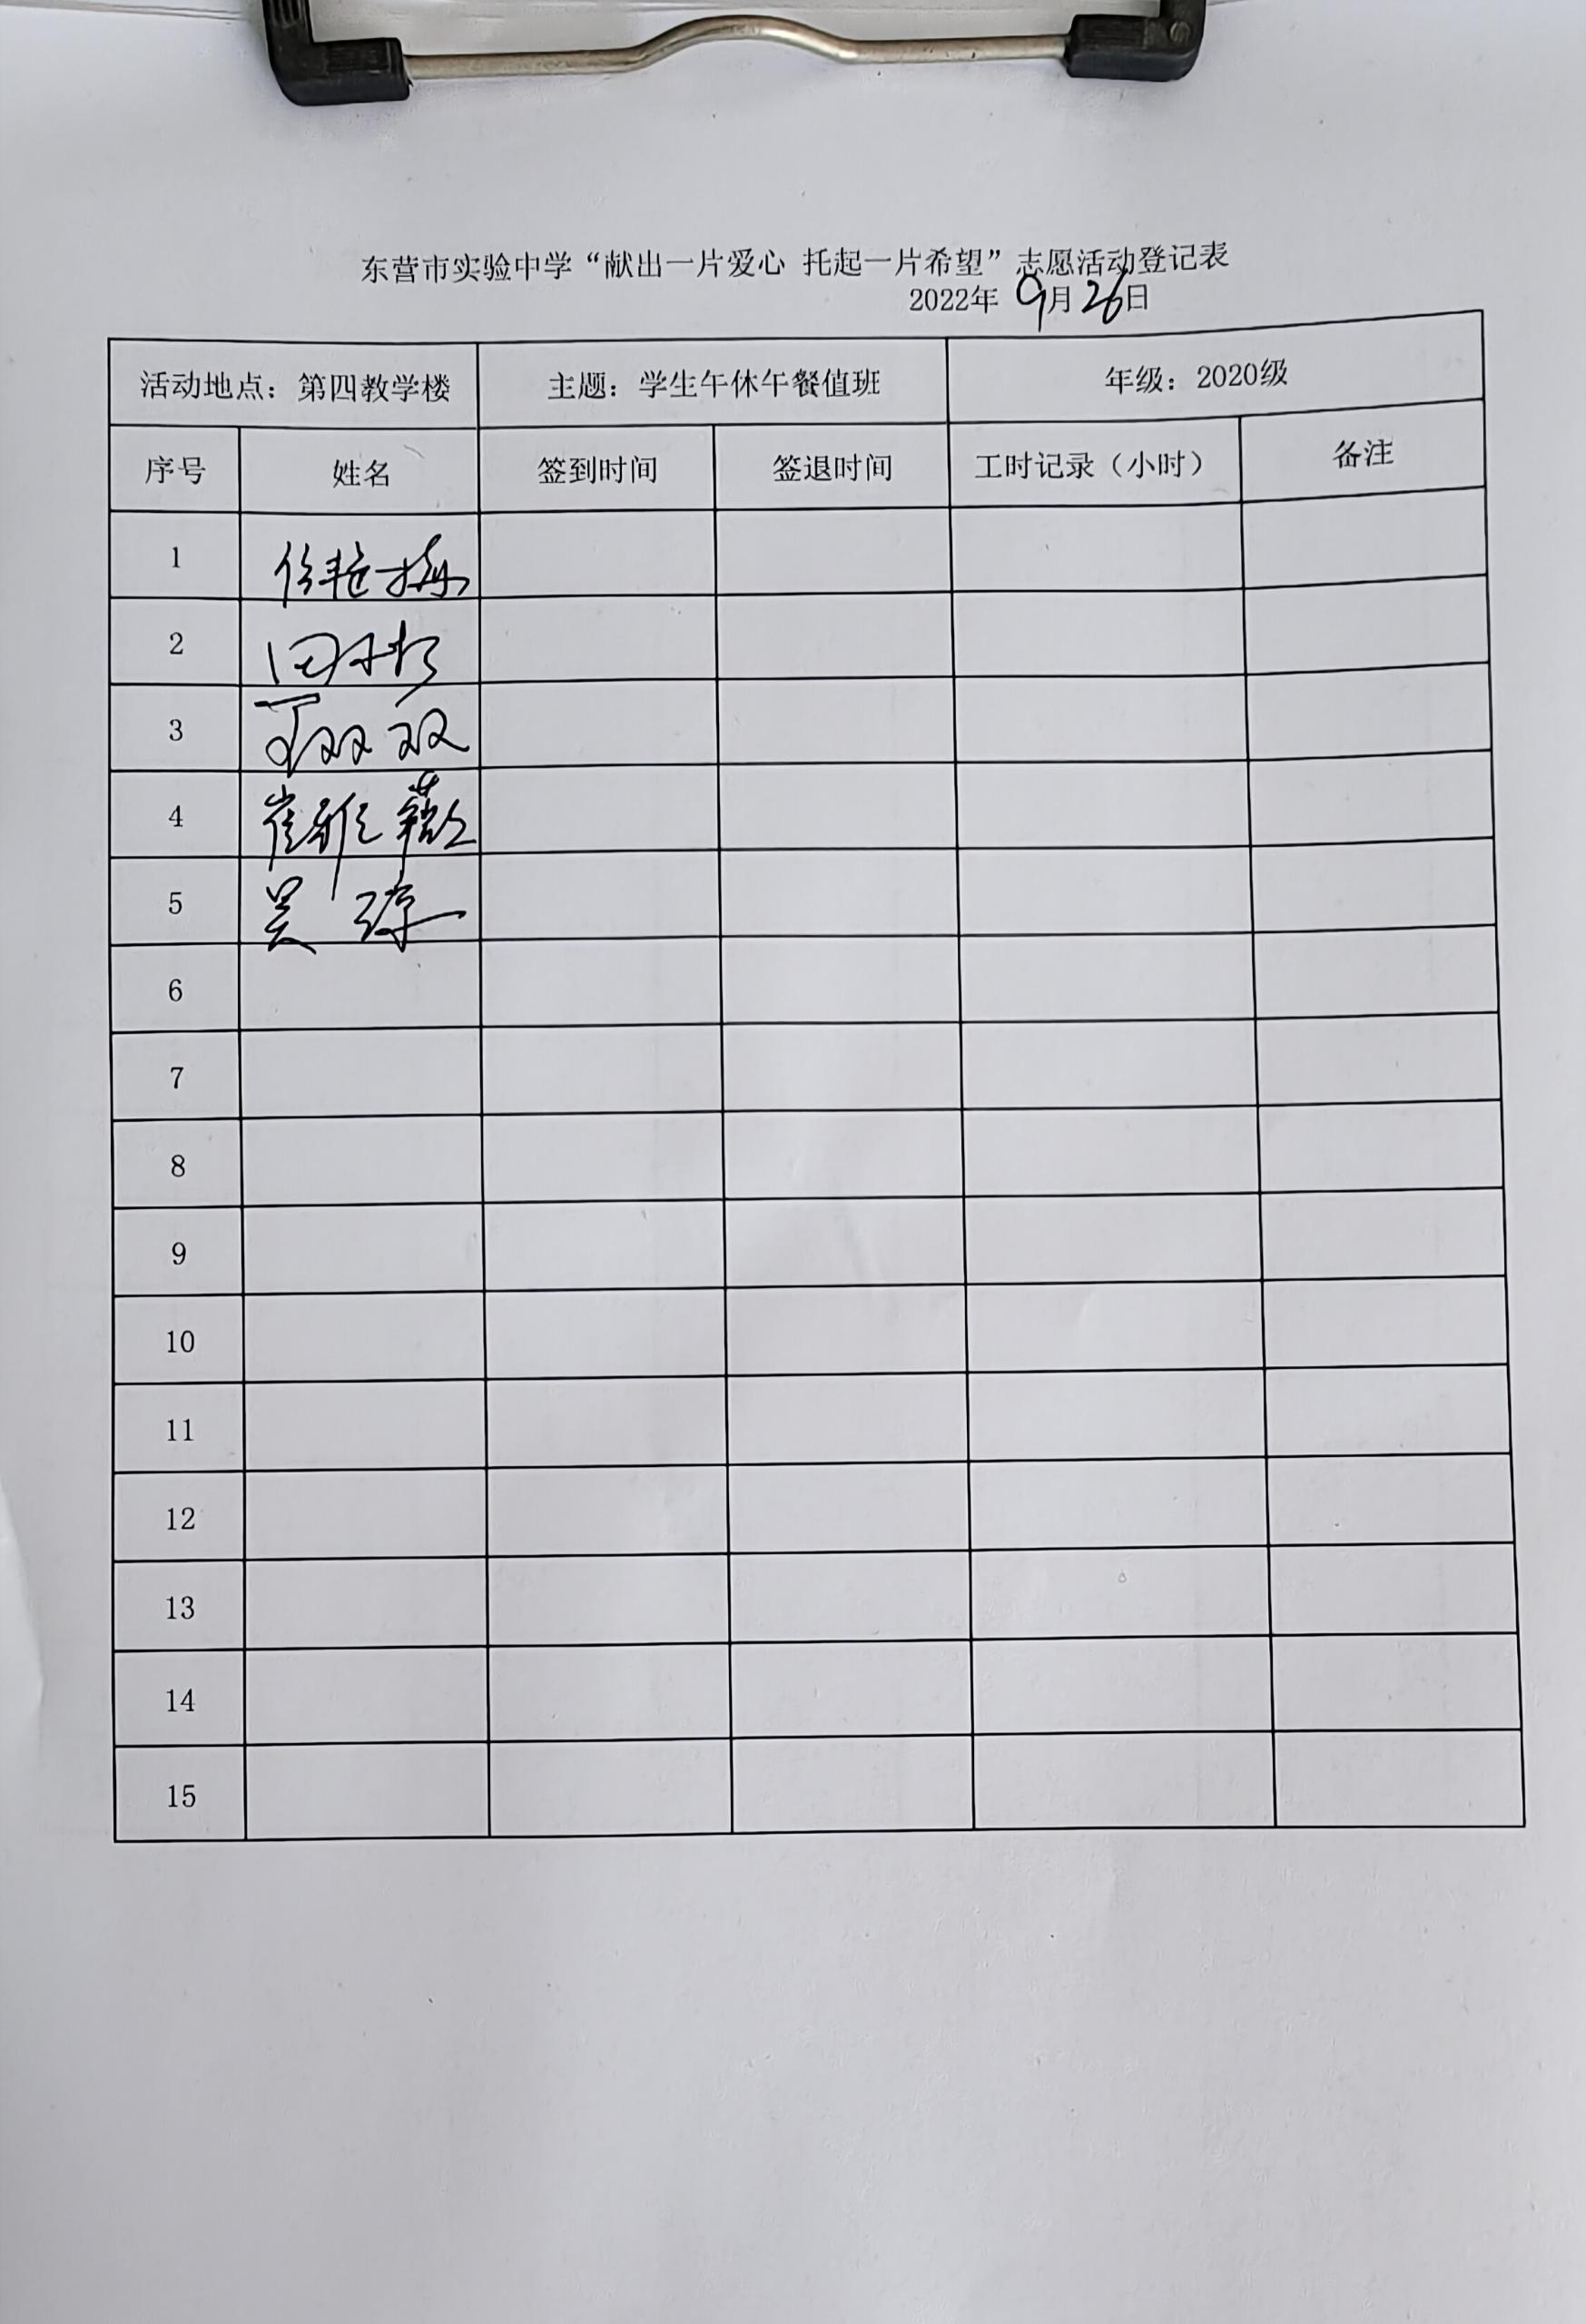 东营市实验中学“献出一片爱心 托起一片希望”志愿活动登记表
2022年 9月26日
活动地点：第四教学楼 主题：学生午休午餐值班 年级：2020级
序号 姓名 签到时间 签退时间 工时记录（小时） 备注
1 徐艳梅
2 田
3 丁双双
4 崔雅薇
5 吴琼
6
7
8
9
10
11
12
13
14
15